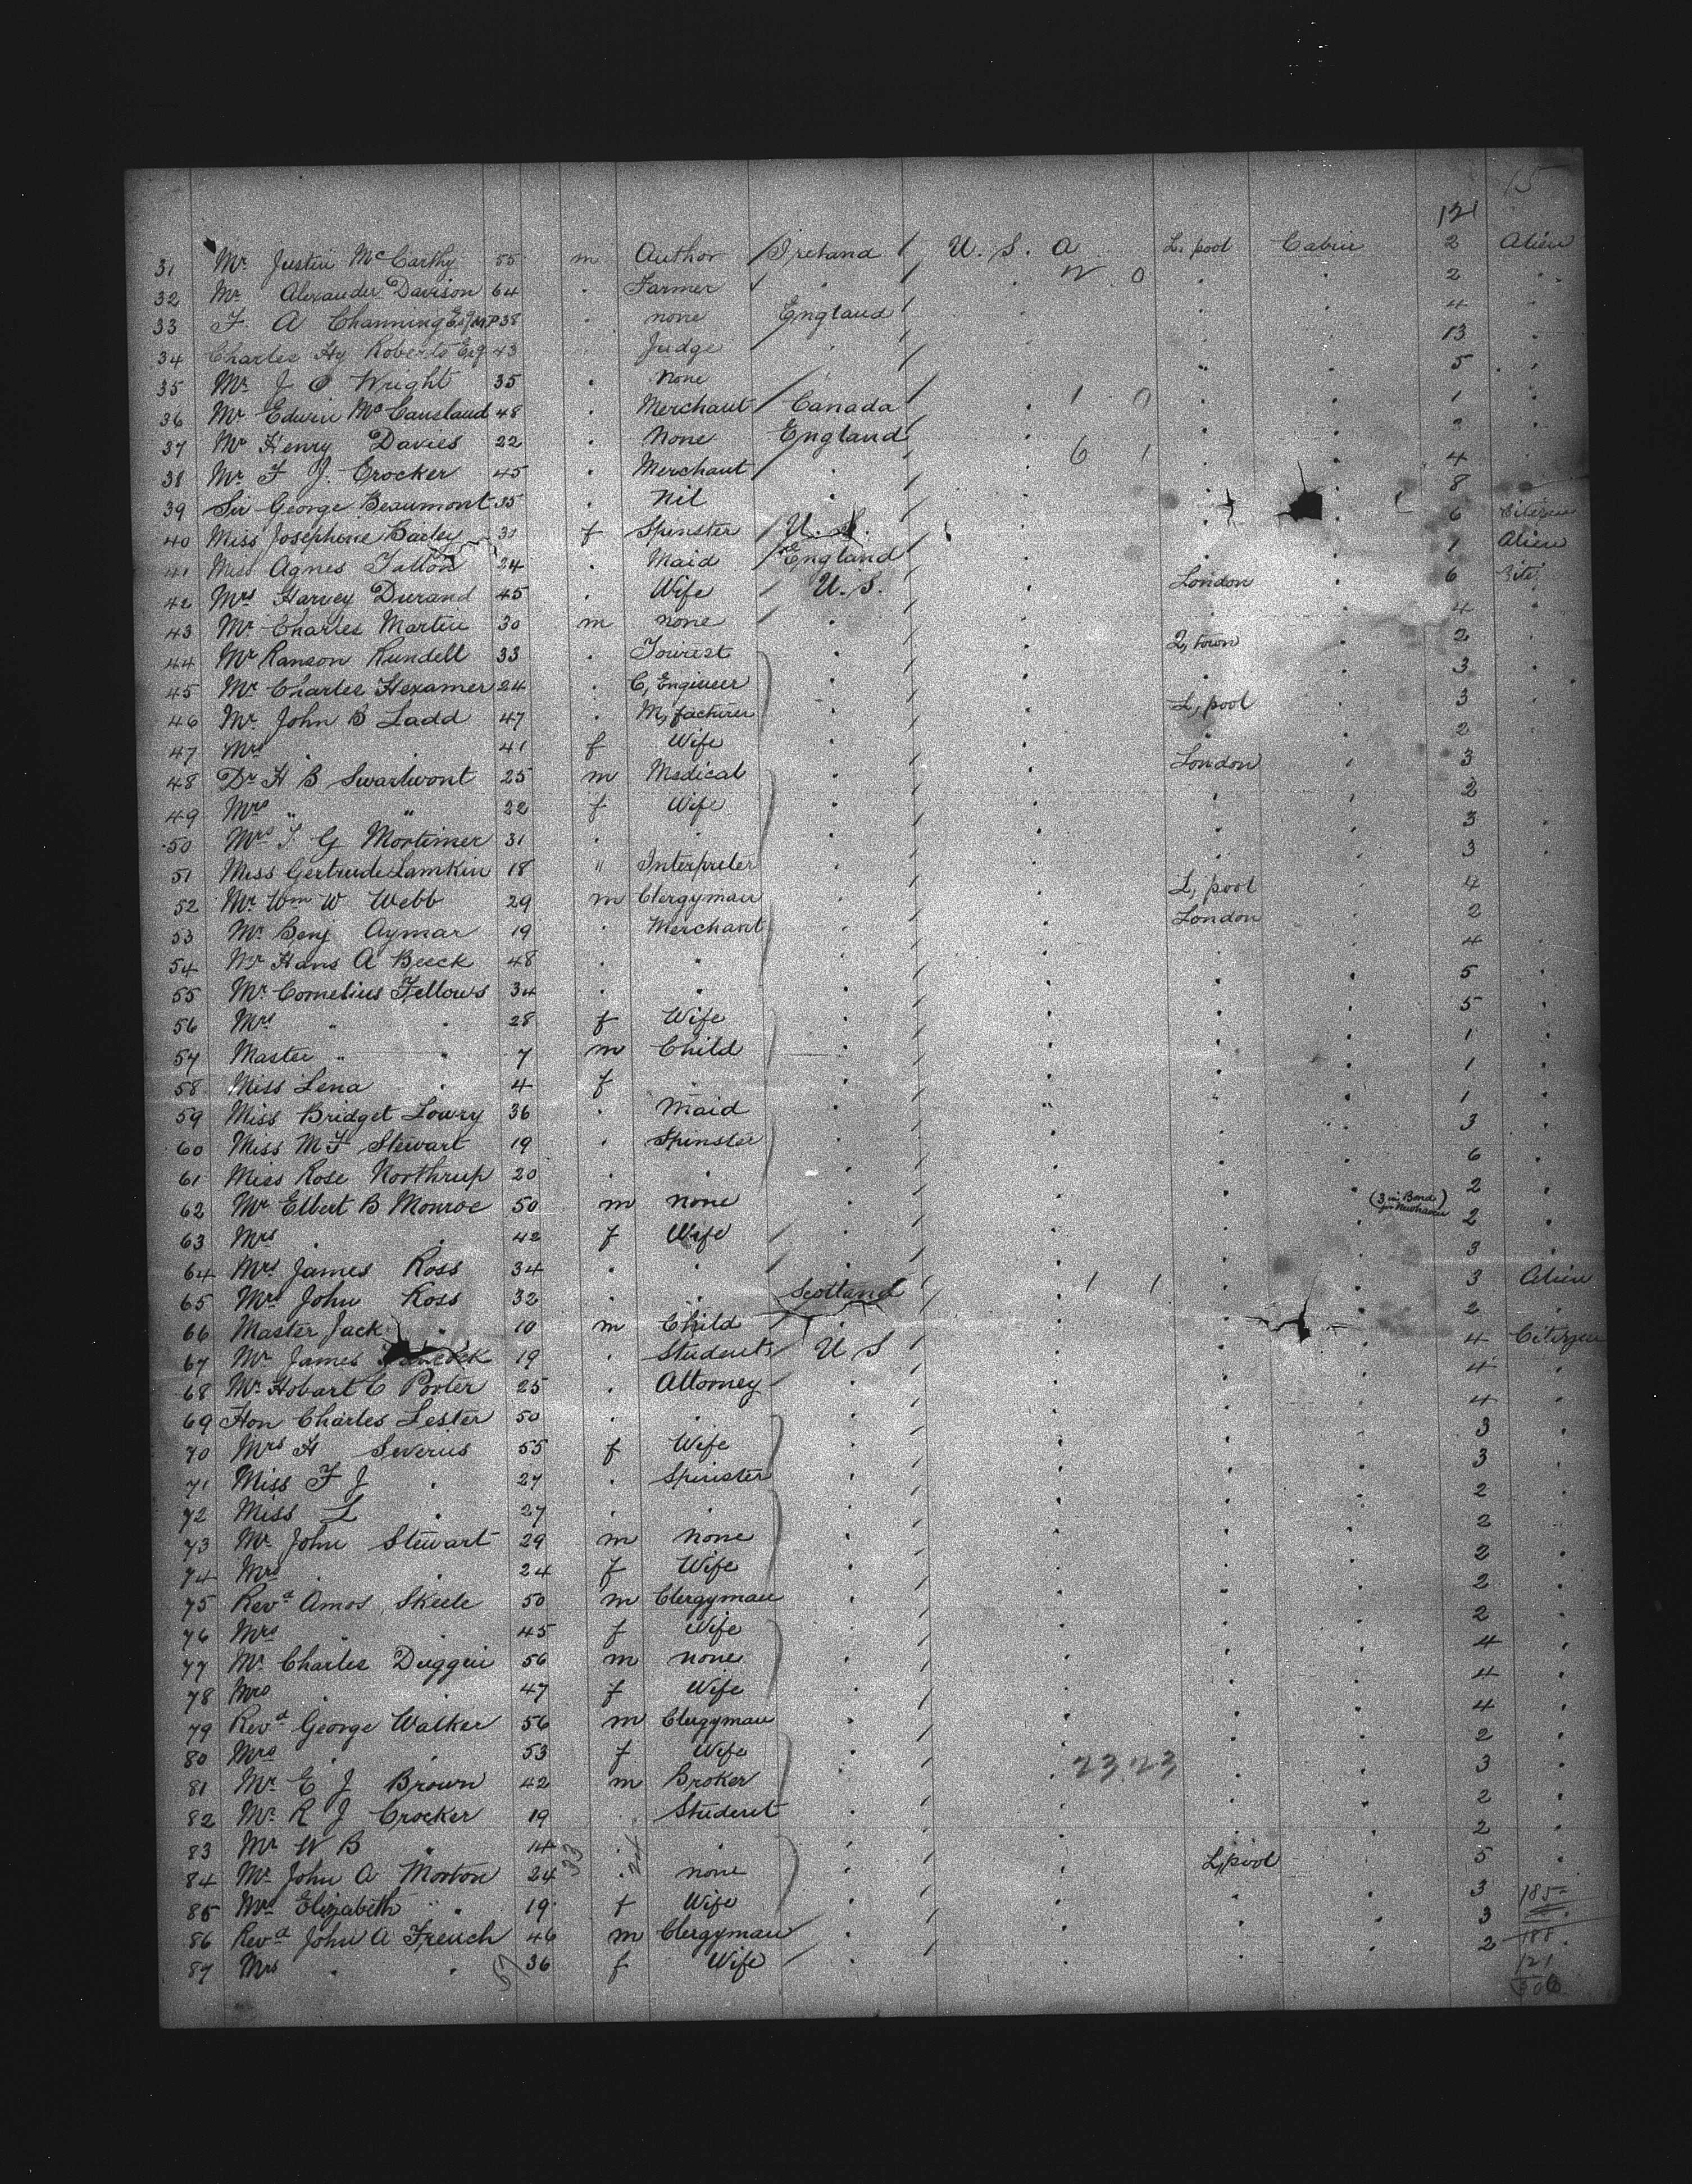 15
121
31 Mr Justin McCarthy 55 m Author Ireland U. S. A L, pool Cabin 2 Alien
32 Mr Alexander Davison 64 . Farmer . . . . 2 .
33 F A Channing Esq MP 38 . none England . . . 4 .
34 Charles Hy Roberts Esq 43 . Judge . . . . 13 .
35 Mr J O Wright 35 . None . . . . 5 .
36 Mr Edwin McCausland 48 . Merchant Canada . 1 0 . . 1 .
37 Mr Henry Davies 22 . None England . . .
38 Mr F J. Crocker 45 . Merchant . . 6 1 . . 4
39 Sir George Beaumont 35 . Nil . . . 8
40 Miss Josephine Bailey 31 f Spinster U. S. . . 6 Citizen
41 Miss Agnes 24 . Maid England . . 1 Alien
42 Mrs Harvey Durand 45 . Wife U. S. . London . 6 Citz
43 Mr Charles Martin 30 m none . . . . 4 .
44 Mr Ranson Rundell 33 . Tourest . . Q, town . 2 .
45 Mr Charles Hexamer 24 . C, Engineer . . . . 3 .
46 Mr John B Ladd 47 . M, facturer . . L, pool . 3 .
47 Mrs . . 41 f Wife . . . . 2
48 Dr H B Swartwout 25 m Medical . . London . 3
49 Mrs " " 22 f Wife . . . . 2
50 Mrs G Mortimer 31 . . . . . . 3 .
51 Miss Gertrude Lamkin 18 " Interpreter . . . . 3 .
52 Mr Wm W Webb 29 m Clergyman . . L, pool . 4 .
53 Mr Benj Aymar 19 . Merchant . . London . 2 .
54 Mr Hans A Beeck 48 . . . . . . 4 .
55 Mr Cornelius Fellows 34 . . . . . . 5 .
56 Mrs " . 28 f Wife . . . . 5 .
57 Master " . 7 m Child . . . . 1 .
58 Miss Lena . 4 f . . . . . 1 .
59 Miss Bridget Lowry 36 . Maid . . . . 1 .
60 Miss M F Stewart 19 . Spinster . . . . 3 .
61 Miss Rose Northrup 20 . . . . . . 6 .
62 Mr Elbert B Monroe 50 m none . . . . (3 in Bond) 2 .
63 Mrs . . 42 f Wife . . . . 2 .
64 Mrs James Ross 34 . . . . . . 3 .
65 Mrs John Ross 32 . . Scotland . 1 1 . . 3 Alien
66 Master Jack . 10 m Child . . . . 2 .
67 Mr James 19 . Student U S . . . 4 Citizen
68 Mr Hobart C Porter 25 . Attorney . . . . 4 .
69 Hon Charles Lester 50 . . . . . . 4 .
70 Mrs H Severus 55 f Wife . . . . 3 .
71 Miss F J . 27 . Spinster . . . . 3 .
72 Miss L . 27 . . . . . . 2 .
73 Mr John Stewart 29 m none . . . . 2 .
74 Mrs . . 24 f Wife . . . . 2 .
75 Revd Amos Skeele 50 m Clergyman . . . . 2 .
76 Mrs . . 45 f Wife . . . . 2 .
77 Mr Charles Duggin 56 m none . . . . 4 .
78 Mrs . . 47 f Wife . . . . 4 .
79 Revd George Walker 56 m Clergyman . . . . 4 .
80 Mrs . . 53 f Wife . . . . 2 .
81 Mr E J Brown 42 m Broker . . 23 23 . . 3 .
82 Mr R J Crocker 19 . Student . . . . 2 .
83 Mr W B " 14 . . . . . . 2 .
84 Mr John A Morton 24 . none . . L, pool 5 .
85 Mrs Elizabeth " " 19 f Wife . . . . 3 185
86 Revd John A French 46 m Clergyman . . . . 3
87 Mrs . . 36 f Wife . . . . 2 188
57
121
306